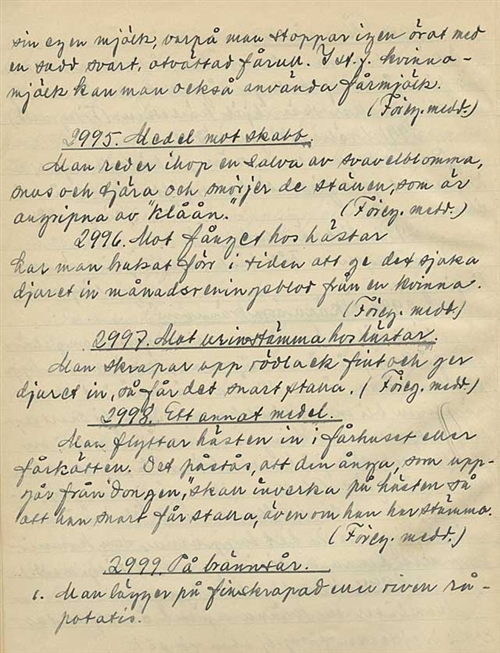 sin egen mjölk, varpå man stoppar igen örat med
en sudd svart, otvättad fårull. I st. f. kvinno-
mjölk kan man också använda fårmjölk.
(Föreg. medd.)
2995. Medel mot skabb.
Man reder ihop en salva av svavelblomma,
snus och tjära och smörjer de ställen, som är
angripna av "klåån." (Föreg. medd.)
2996. Mot fånget hos hästar
har man brukat förr i tiden att ge det sjuka
djuret in månadsreningsblod från en kvinna.
(Föreg. medd.)
2997. Mot urinstämma hos hästar.
Man skrapar upp rödlack fint och ger
djuret in, så får det snart stalla. (Föreg. medd.)
2998. Ett annat medel.
Man flyttar hästen in i fårhuset eller
fårkätten. Det påstås, att den ånga, som upp-
går från "dongen," skall inverka på hästen så
att han snart får stalla, även om han har stämma.
(Föreg. medd.)
2999. På brännsår.
1. Man lägger på finskrapad eller riven rå-
potatis.